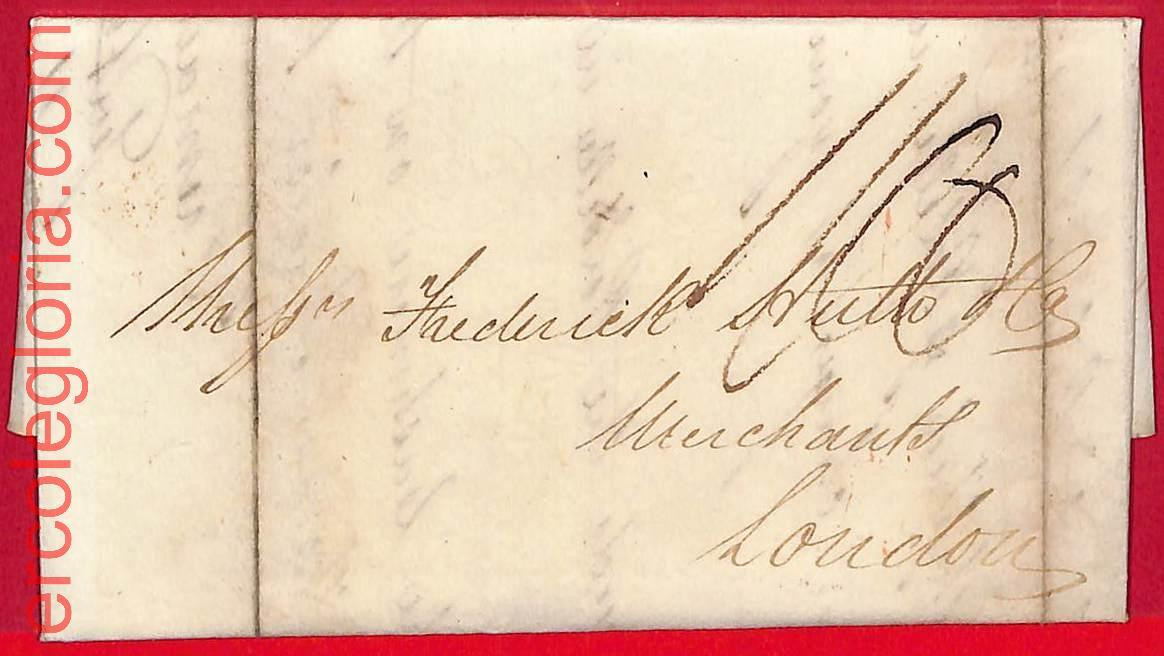 ercolegloria.com
Messrs Frederick Huth & Co
Merchants
London